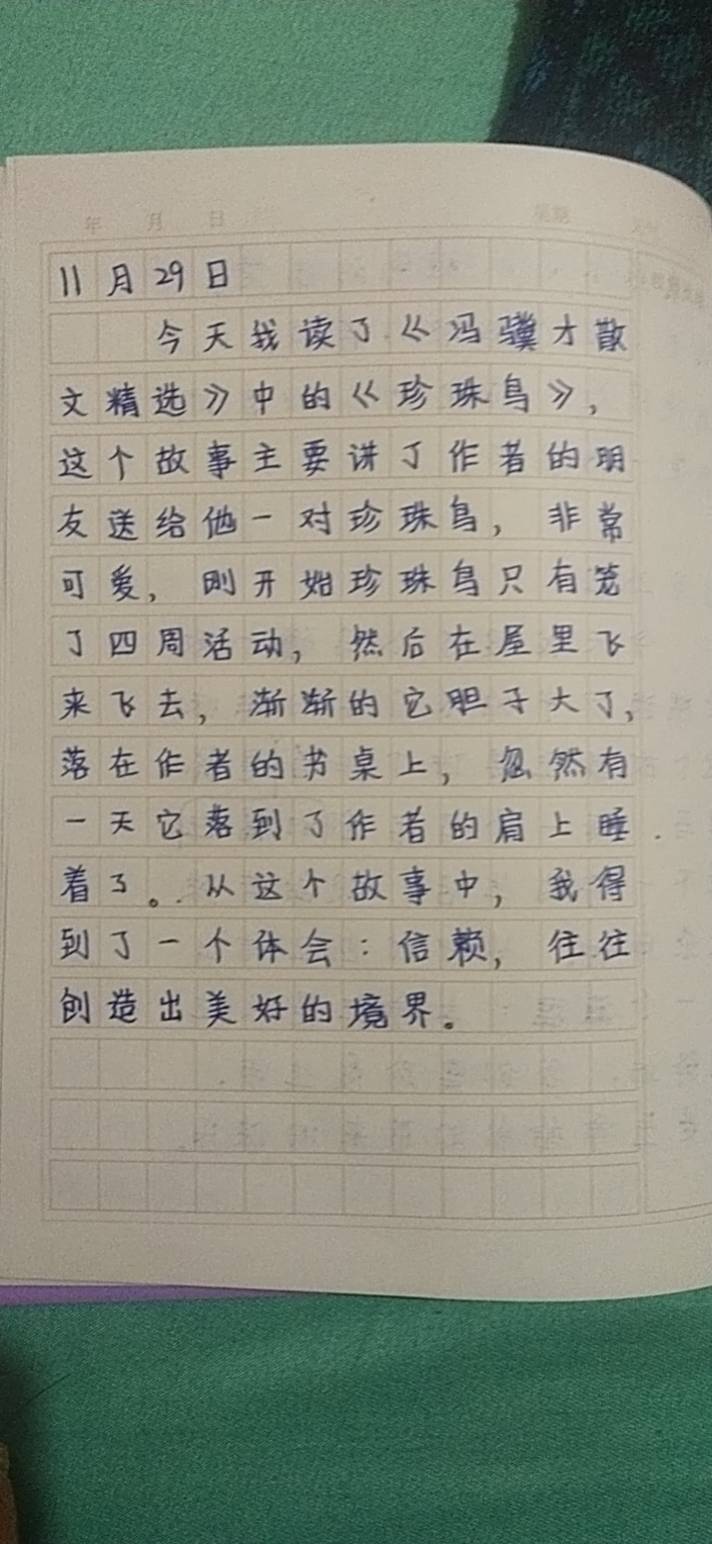 年 月 日 星期
11月29日
今天我读了《冯骥才散
文精选》中的《珍珠鸟》,
这个故事主要讲了作者的朋
友送给他一对珍珠鸟,非常
可爱,刚开始珍珠鸟只有笼
了四周活动,然后在屋里飞
来飞去,渐渐的它胆子大了,
落在作者的书桌上,忽然有
一天它落到了作者的肩上睡
着了。从这个故事中,我得
到了一个体会:信赖,往往
创造出美好的境界。